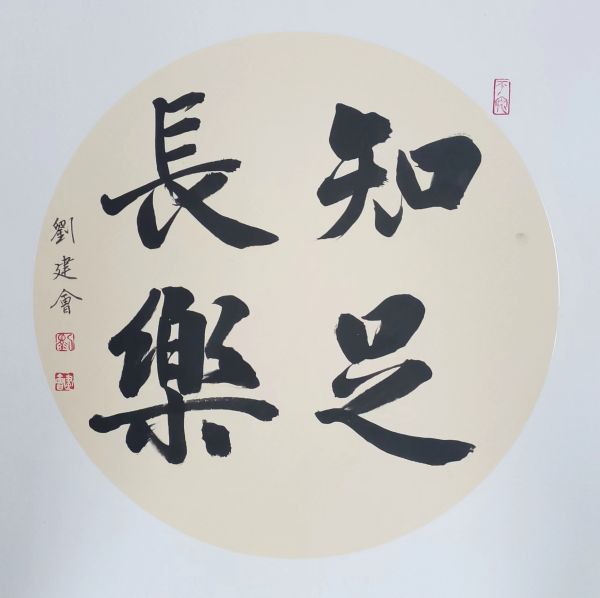 知足
長樂
劉建會